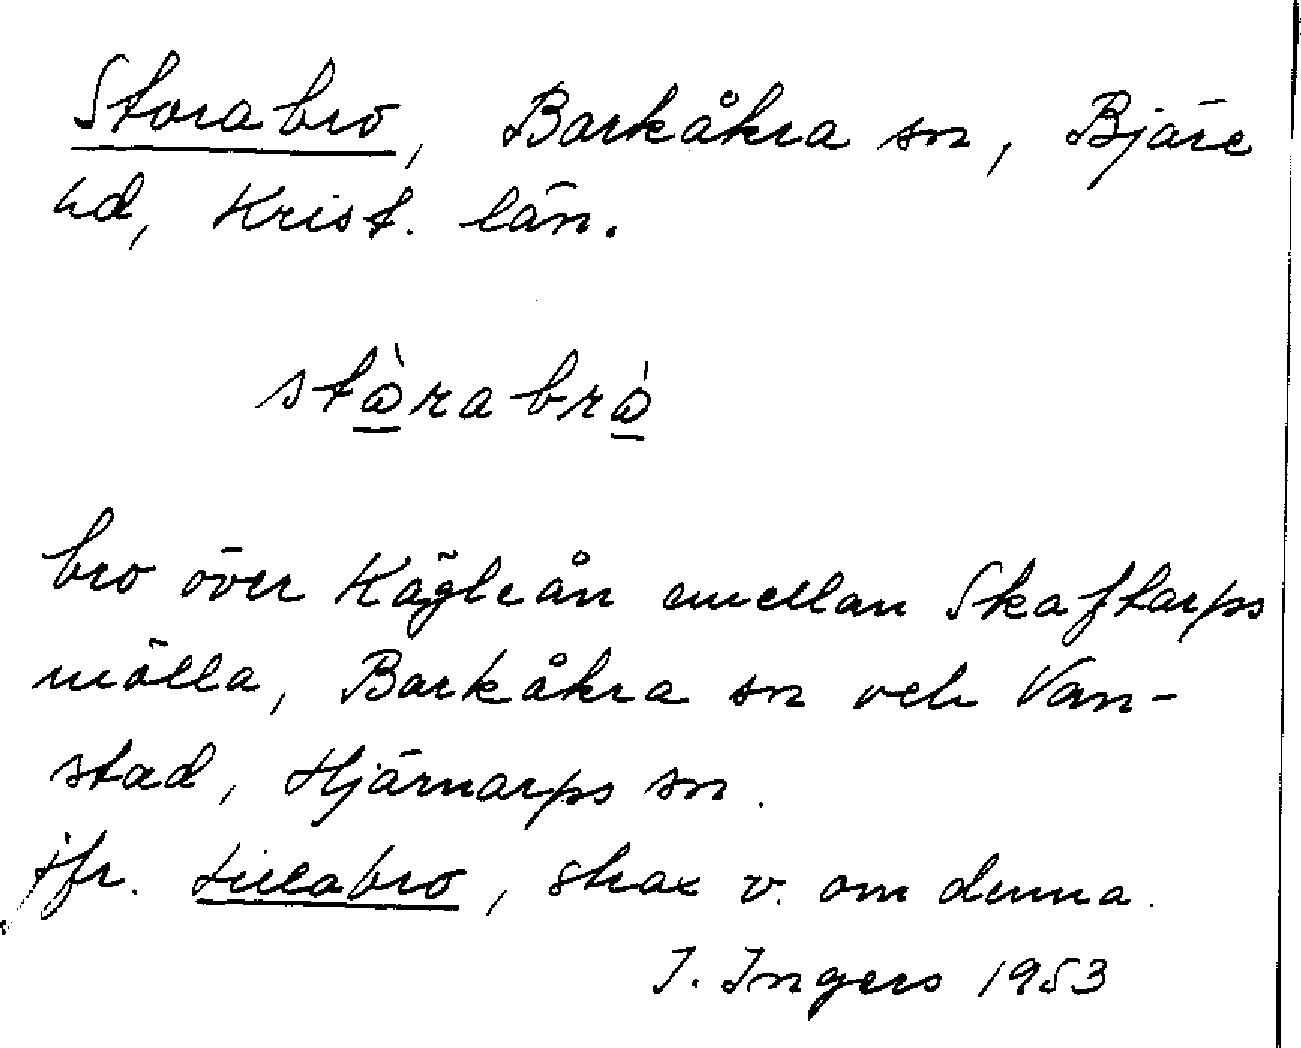 Storabro, Barkåkra sn, Bjäre
hd, Krist. län.
stòrabró
bro över Kägleån mellan Skaftarps
mölla, Barkåkra sn och Van-
stad, Hjärnarps sn.
jfr. Lillabro, strax v. om denna.
I. Ingers 1953